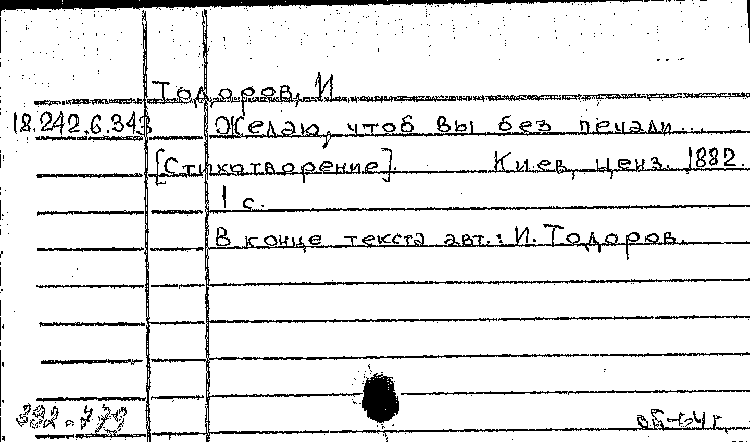 Тодоров, И
18.242.6.343 Желаю, чтоб вы без печали...
[Стихотворение]. Киев, ценз. 1882.
1 с.
В конце текста авт.: И. Тодоров.
392-779